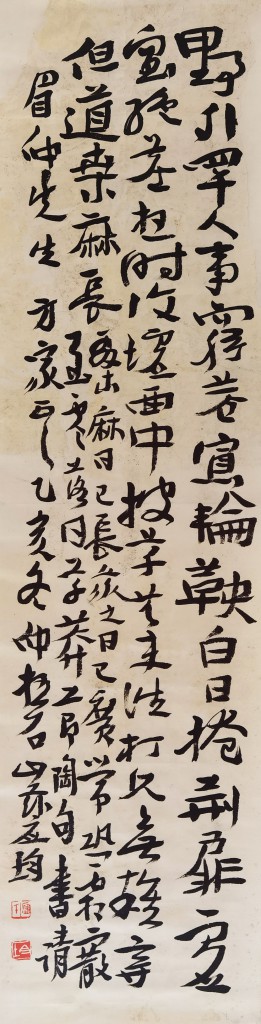 野外罕人事窮巷寡輪鞅白日掩荊扉虛
室絕塵想时復墟曲中披草共来往相見無雜言
但道桑麻長桑麻日已長我土日已廣常恐霜霰
至零落同草莽 陶句書請
眉仲先生方家正之乙亥冬仲 石山 均